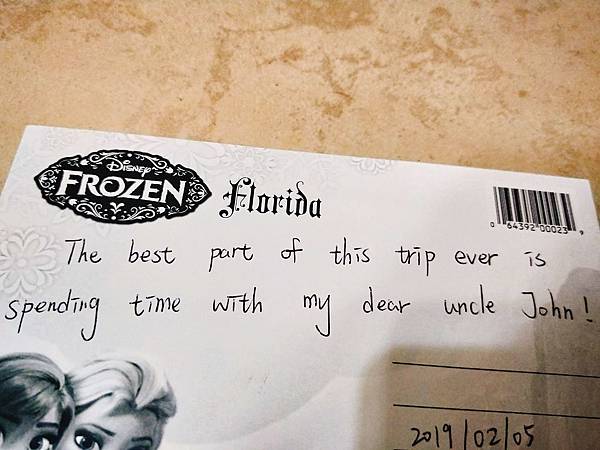 Disney
FROZEN
Florida
0 64392 00023 9
The best part of this trip ever is
spending time with my dear uncle John!
2019/02/05